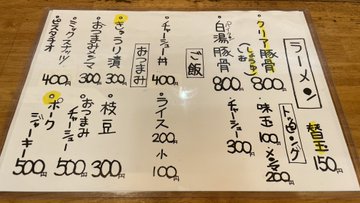 ラーメン
クリア豚骨
しょうゆ
しお
800円
白湯豚骨
800円
替玉
150円
トッピング
味玉
100円
メンマ
200円
チャーシュー
300円
ご飯
チャーシュー丼
400円
ライス
200円
小
100円
おつまみ
きゅうり漬
300円
おつまみメンマ
300円
ミックスナッツ
400円
ピスタチオ
400円
枝豆
300円
おつまみチャーシュー
500円
ポークジャーキー
500円